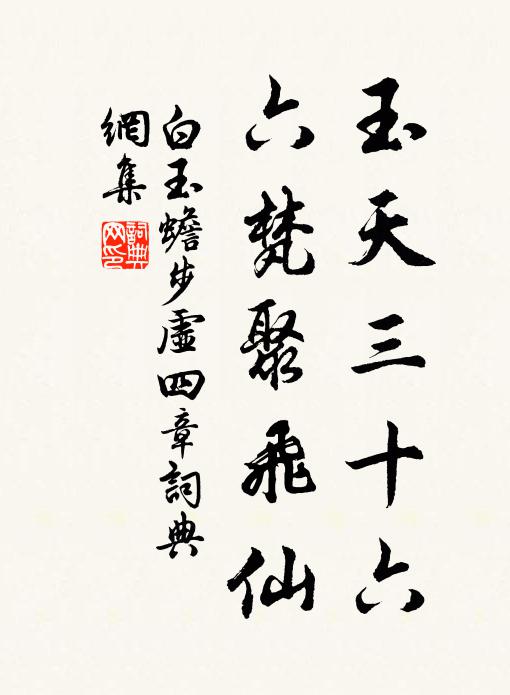 玉天三十六
六梵聚飛仙
白玉蟾步虛四章詞典
網集
詞典
网印